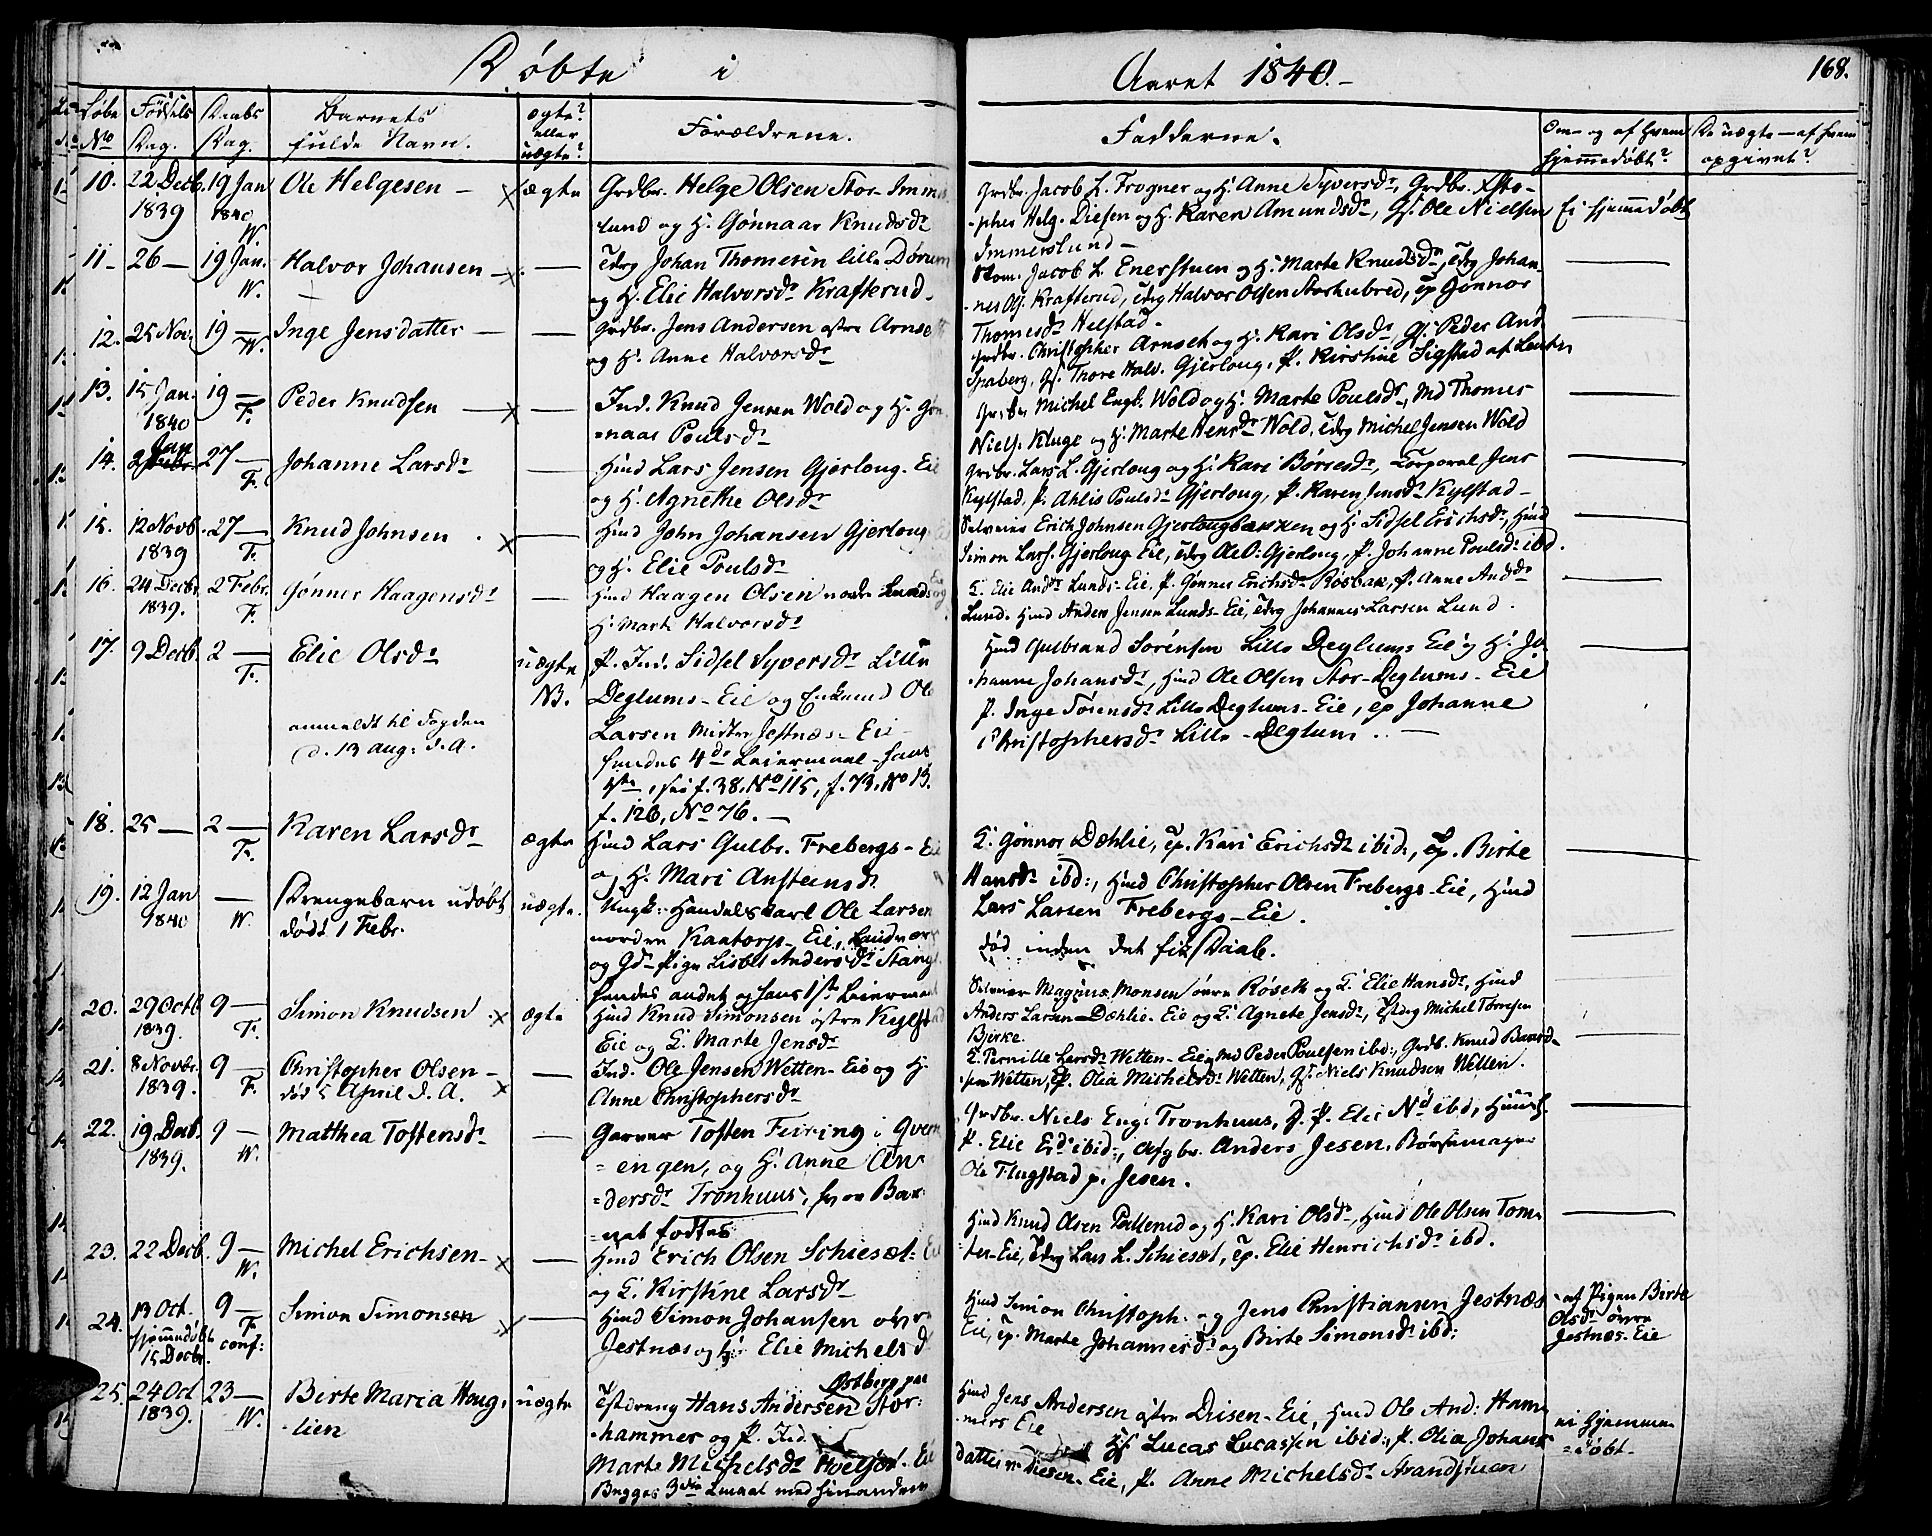 Døbte i Aaret 1840.
168.
Løbe No
Fødsels Dag.
Daabs Dag.
Barnets fulde Navn.
ægte? eller uægte?
Forældrene.
Fadderne.
Om- og af hvem hjemmedøbt?
De uægte - af hvem opgivet?
10. 22 Decb. 1839
19 Jan 1840 W.
Ole Helgesen -
ægte
Grdbr. Helge Olsen Stor-Immers
lund og H. Gønnaar Knudsdr
Grdbr. Jacob L. Frogner og H. Anne Syversdr, Grdbr. Xsto-
pher Helg. Diesen og H. Karen Amundsdr, Gf. Ole Nielsen
Immerslund -
Ei hjemmedøbt
11 - 26 -
19 Jan. W.
Halvor Johansen -
Johan Thomesen lille Dørum
og H. Elie Halvorsdr Krafterud.
Jacob L. Enerstuen og H. Marte Knudsdr, Johan-
nes Ol. Krafterud, Halvor Olsen Storhubred, ep Gønnor
Thomesdr Helstad.
12. 25 Nov.
19 - W.
Inge Jensdatter -
Grdbr. Jens Andersen østre Arnset
og H. Anne Halvorsdr
Grdbr. Christopher Arnset og H. Kari Olsdr, Gf. Peder And.
Spaberg, Gf. Thore Halv. Gjerloug, P. Kirstine Sigstad af
13. 15 Jan. 1840
19 - F.
Peder Knudsen -
Ind. Knud Jensen Wold og H. Gøn
=naar Poulsdr
Grdbr Michel Engb. Wold og H. Marte Poulsdr, Md Thomes
Niels. Kluge og H. Marte Hensdr Wold, Michel Jensen Wold
14. 2 Jan
27 - F.
Johanne Larsdr
Huusd Lars Jensen Gjerloug-Eie
og H. Agnethe Olsdr
Grdbr. Lars L. Gjerloug og H. Kari Børresdr, Corporal Jens
Kylstad, P. Ahlis Poulsdr Gjerloug, P. Karen Jensdr Kylstad -
15. 12 Novb. 1839
27 - F.
Knud Johnsen
Huusd John Johansen Gjerloug
og H. Elie Poulsdr
Selveier Erich Johnsen Gjerlougbakken og H. Sidsel Erichsdr, Huusd
Simon Lars. Gjerloug Eie, Ole O. Gjerloug, P. Johanne Poulsdr ibd.
16. 24 Decbr 1839.
2 Febr. F.
Gønner Haagensdr
Huusd Haagen Olsen nordre Lunds Eie og
H. Marte Halvorsdr
K. Elie Anddr Lunds-Eie, P. Gønner Erichsdr Rosbak, P. Anne Anddr
Lund. Huusd Anders Jensen Lunds-Eie, Johannes Larsen Lund.
17. 9 Decb.
2 - F.
Elie Olsdr
anmeldt til Fogden
d. 13 Aug: d. A.
uægte
NB.
P. Ind. Sidsel Syversdr Lille
Deglums-Eie og Enkemd Ole
Larsen Jestnæs-Eie
hendes 4de Leiermaal - hans
f. 38, No 115, f. 73, No 13.
f. 126, No 76. -
Huusd Gulbrand Sørensen Lille Deglums Eie og H. Jo
hanne Johansdr, Huusd Ole Olsen Stor-Deglums-Eie
P. Inge Sørensdr Lille Deglums-Eie, ep Johanne
Christophersdr Lille-Deglum. -
18. 25 -
2 - F.
Karen Larsdr
ægte
Huusd Lars Gulbr. Frebergs-Eie
og H. Mari Anstensdr
K. Gønnor Dæhlie, ep. Kari Erichsdr ibid:, ep. Birte
Hansdr ibd:, Huusd Christopher Olsen Frebergs-Eie, Huusd
Lars Larsen Frebergs-Eie.
19. 12 Jan 1840
- W.
Drengebarn udøbt
død 1 Febr.
uægte.
Ungk: Handelskarl Ole Larsen
nordre Kaatorp-Eie,
og Gd-Pige Lisbet Andersdr Stang
hendes andet og hans 1ste Leiermaal
død inden det fik Daab.
20. 29 Octb 1839.
9 - F.
Simon Knudsen
ægte
Huusd Knud Simonsen østre Kylstad
Eie og K. Marte Jensdr
Selveier Magnus Monsen øvre Roset og K. Elie Hansdr, Huusd
Anders Larsen Dæhlie-Eie og K. Agnete Jensdr, Michel Torresen
Bjerke.
21. 8 Novbr. 1839.
9 - F.
Christopher Olsen -
død 5 April d. A.
Ind. Ole Jensen Wetten-Eie og H.
Anne Christophersdr
K. Pernille Larsdr Wetten-Eie, Md Peder Poulsen ibd:, Grdb. Knud
Wetten, P. Olia Michelsdr Wetten, Gf. Niels Knudsen Wetten.
22. 19 Decb. 1839.
9 - W.
Matthea Tostensdr
Garver Tosten Feiring i Qvern
=engen, og H. Anne An-
=dersdr Tronhuus, hvor Bar-
=net fødtes
Grdbr. Niels Eng: Tronhuus, P. Elie Nd ibd,
P. Elie Edr ibid:, Afgbr. Anders Jesen, Børsemager
Ole Flugstad p. Jesen.
23. 22 Decb.
9 - W.
Michel Erichsen -
Huusd Erich Olsen Schieset-Eie
og K. Kirstine Larsdr
Huusd Knud Olsen Pallerud og H. Kari Olsdr, Huusd Ole Olsen Tom-
ter-Eie, Lars L. Schieset, ep. Elie Henrichsdr ibd.
24. 13 Oct. hjemmedøbt 15 Decbr.
9 - F. conf:
Simon Simonsen
Huusd Simon Johansen øvre
Jestnæs og H: Elie Michelsd
Huusd Simon Christoph. og Jens Christiansen Jestnæs
Eie, ep. Marte Johannesdr og Birte Simonsdr ibd:
- af Pigen Birte
Olsdr øvre
Jestnæs-Eie
25. 24 Oct 1839.
23 - W.
Birte Maria Haug-
lien
uægte
Østberg paa
Hans Andersen Stor-
hammer og P. Ind.
Marte Michelsdr Hoelset-Eie
Begges 3die Leiermaal med hinanden
Huusd Jens Andersen østre Disen-Eie, Huusd Ole And: Ham
mers Eie
Lucas Lucassen ibid:, P. Olia Johans
datter Disen-Eie, P. Anne Michelsdr Strandstuen
ei hjemme
=døbt.